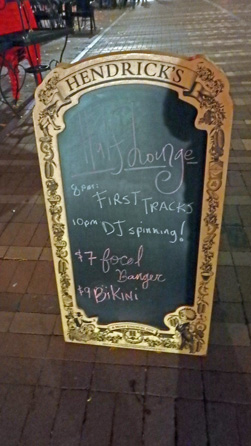 HENDRICK'S
Lounge
8PM:
FIRST TRACKS
10pm DJ spinning!
$7 focal
Banger
$9 BiKiNi
HENDRICK'S